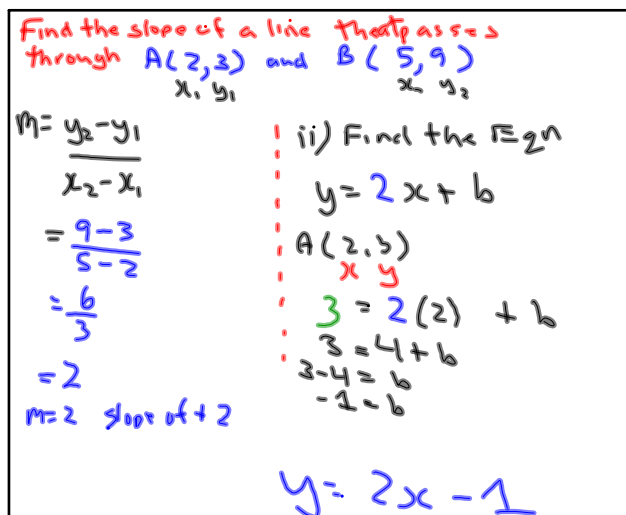 Find the slope of a line theatpasses
through A(2,3) and B(5,9)
x₁ y₁ x₂ y₂
m = y₂-y₁
x₂-x₁
= 9-3
5-2
= 6
3
= 2
m=2 slope of +2
ii) Find the Eqn
y = 2x + b
A(2,3)
x y
3 = 2(2) + b
3 = 4+b
3-4 = b
-1 = b
y = 2x - 1